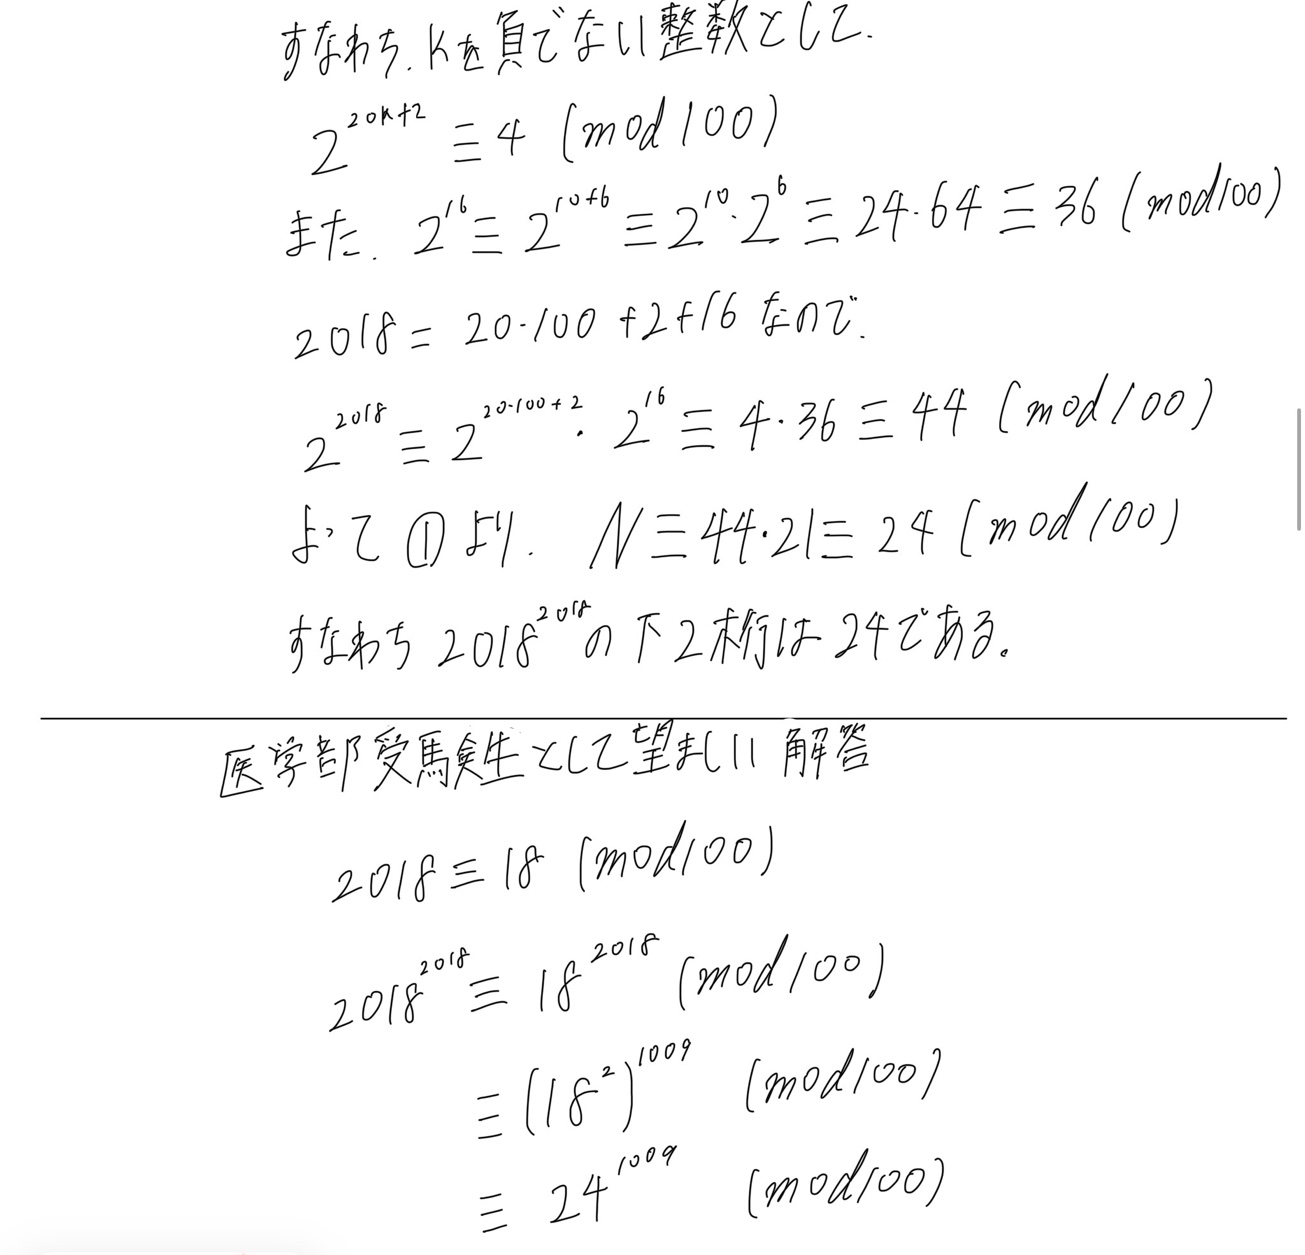 すなわち、kを負でない整数として、
2^{20k+2} ≡ 4 (mod 100)
また、2^{16} ≡ 2^{10+6} ≡ 2^{10}・2^{6} ≡ 24・64 ≡ 36 (mod 100)
2018 = 20・100 + 2 + 16 なので、
2^{2018} ≡ 2^{20・100+2}・2^{16} ≡ 4・36 ≡ 44 (mod 100)
よって ① より、N ≡ 44・21 ≡ 24 (mod 100)
すなわち 2018^{2018} の下2桁は24である。
医学部受験生として望ましい解答
2018 ≡ 18 (mod 100)
2018^{2018} ≡ 18^{2018} (mod 100)
≡ (18^{2})^{1009} (mod 100)
≡ 24^{1009} (mod 100)